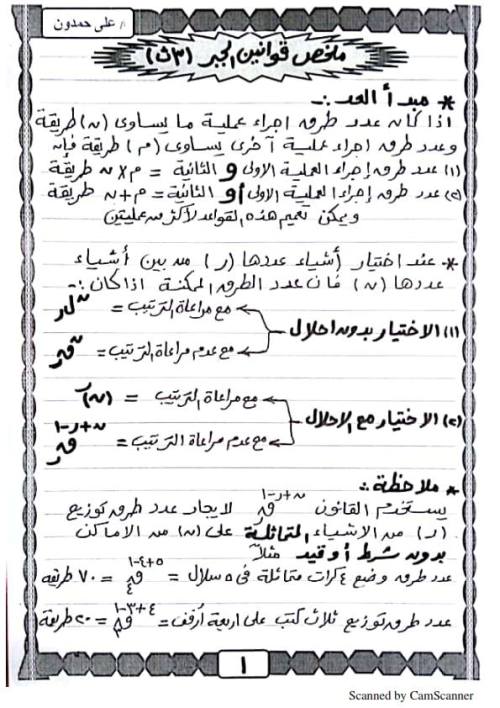 أ/ على حمدون
ملخص قوانين الجبر (٣ث)
* مبدأ العد :-
اذا كان عدد طرق اجراء عملية ما يساوى (ن) طريقة
وعدد طرق اجراء عملية آخرى يساوى (م) طريقة فإن
(١) عدد طرق إجراء العملية الاولى و الثانية = م × ن طريقة
(٢) عدد طرق إجراء العملية الاولى أو الثانية = م + ن طريقة
ويمكن تعميم هذه القواعد لأكثر من عمليتين
* عند اختيار أشياء عددها (ر) من بين أشياء
عددها (ن) فان عدد الطرق الممكنة اذا كان :-
مع مراعاة الترتيب = ⁿلر
(١) الاختيار بدون احلال
مع عدم مراعاة الترتيب = ⁿقر
مع مراعاة الترتيب = (ن)ر
(٢) الاختيار مع الاحلال
مع عدم مراعاة الترتيب = ن+ر-١قر
* ملاحظة :
يستخدم القانون ن+ر-١قر لايجاد عدد طرق توزيع
(ر) من الاشياء المتماثلة على (ن) من الاماكن
بدون شرط أو قيد مثلاً
عدد طرق وضع ٤ كرات متماثلة فى ٥ سلال = ٥+٤-١ق٤ = ٧٠ طريقة
عدد طرق توزيع ثلاث كتب على اربعة أرفف = ٤+٣-١ق٣ = ٢٠ طريقة
١
Scanned by CamScanner